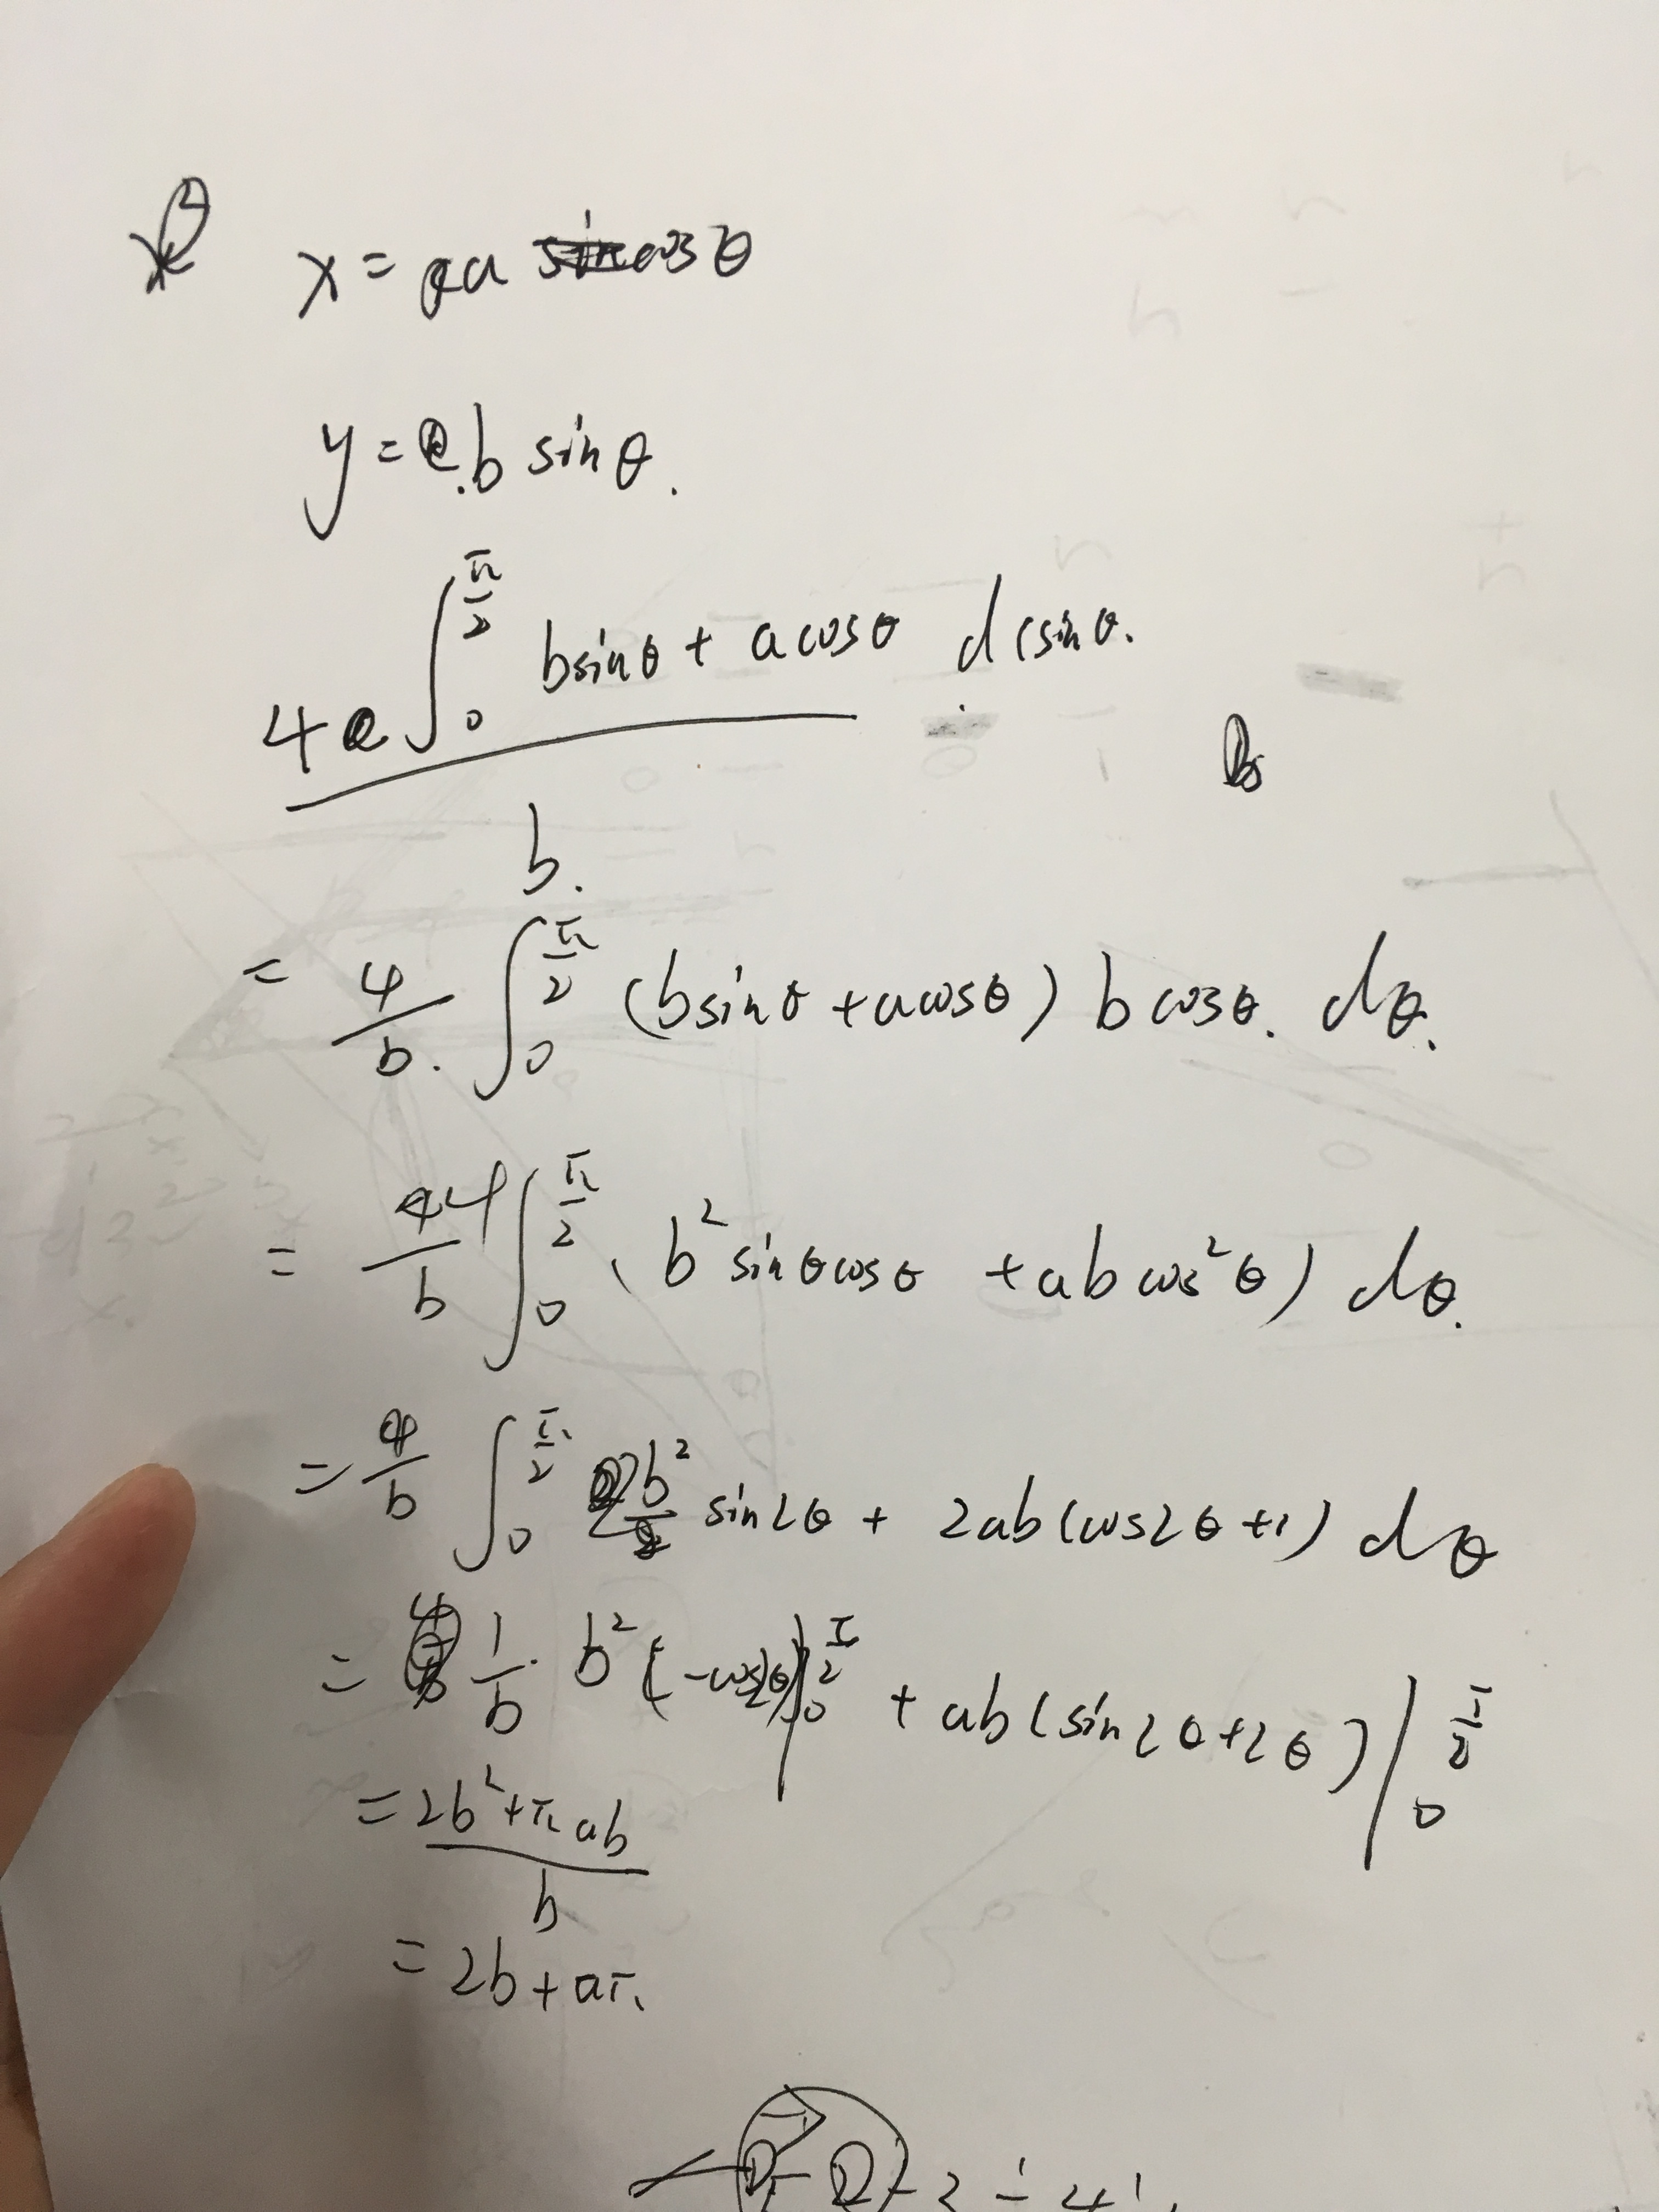 x = a cosθ
y = b sinθ.
4 ∫_0^{π/2} bsinθ + a cosθ d(sinθ.
b.
= 4/b. ∫_0^{π/2} (bsinθ + acosθ) b cosθ. dθ.
= 4/b ∫_0^{π/2} ( b² sinθcosθ + ab cos²θ) dθ.
= 4/b ∫_0^{π/2} 2b² sin2θ + 2ab(cos2θ+1) dθ
= 1/b · b² (-cos2θ)|_0^{π/2} + ab(sin2θ+2θ)|_0^{π/2}
= (2b²+πab)/b
= 2b + aπ.